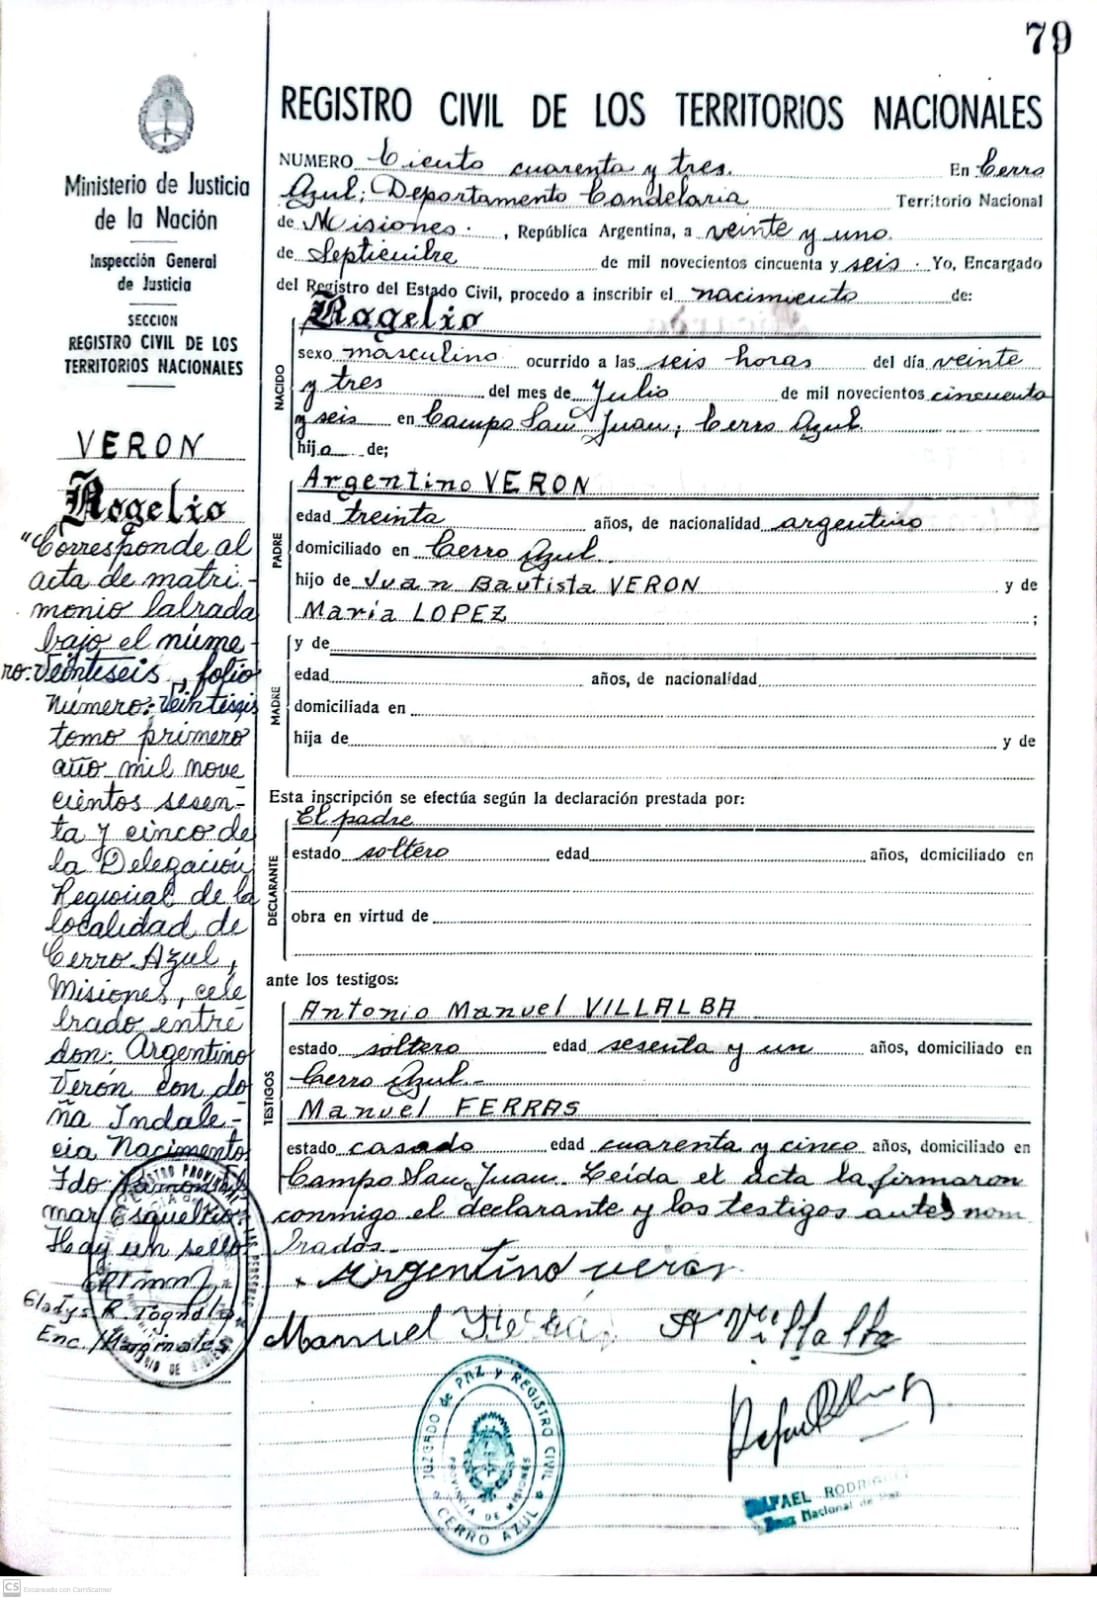 79
REGISTRO CIVIL DE LOS TERRITORIOS NACIONALES
Ministerio de Justicia
de la Nación
Inspección General
de Justicia
SECCION
REGISTRO CIVIL DE LOS
TERRITORIOS NACIONALES
VERON
Rogelio
"Corresponde al
acta de matri-
monio labrada
bajo el núme-
ro: Veintiseis, folio
número: veintiseis
tomo primero
año mil nove
cientos sesen-
ta y cinco de
la Delegación
Regional de la
localidad de
Cerro Azul,
Misiones, cele
brado entre
don: Argentino
Verón con do
ña Indale-
cia Nacimento
Fdo Ramón
mar
Hay un sello
Gladys R. Tognola
Enc. /Marginales
NUMERO Ciento cuarenta y tres. En Cerro
Azul; Departamento Candelaria Territorio Nacional
de Misiones. , República Argentina, a veinte y uno
de Septiembre de mil novecientos cincuenta y seis. Yo, Encargado
del Registro del Estado Civil, procedo a inscribir el nacimiento de:
NACIDO
Rogelio
sexo masculino ocurrido a las seis horas del día veinte
y tres del mes de Julio de mil novecientos cincuenta
y seis en Campo San Juan; Cerro Azul.
hijo de;
PADRE
Argentino VERON
edad treinta años, de nacionalidad argentino
domiciliado en Cerro Azul.
hijo de Juan Bautista VERON y de
María LOPEZ ;
MADRE
y de
edad años, de nacionalidad
domiciliada en
hija de y de
Esta inscripción se efectúa según la declaración prestada por:
DECLARANTE
El padre
estado soltero edad años, domiciliado en
obra en virtud de
ante los testigos:
TESTIGOS
Antonio Manuel VILLALBA
estado soltero edad sesenta y un años, domiciliado en
Cerro Azul.-
Manuel FERRAS
estado casado edad cuarenta y cinco años, domiciliado en
Campo San Juan. Leída el acta la firmaron
conmigo el declarante y los testigos antes nom
brados.-
Argentino veron
Manuel A Villalba
JUZGADO de PAZ y REGISTRO CIVIL
PROVINCIA DE MISIONES
CERRO AZUL
RAFAEL
Juez Nacional de Paz
CS Escaneado con CamScanner